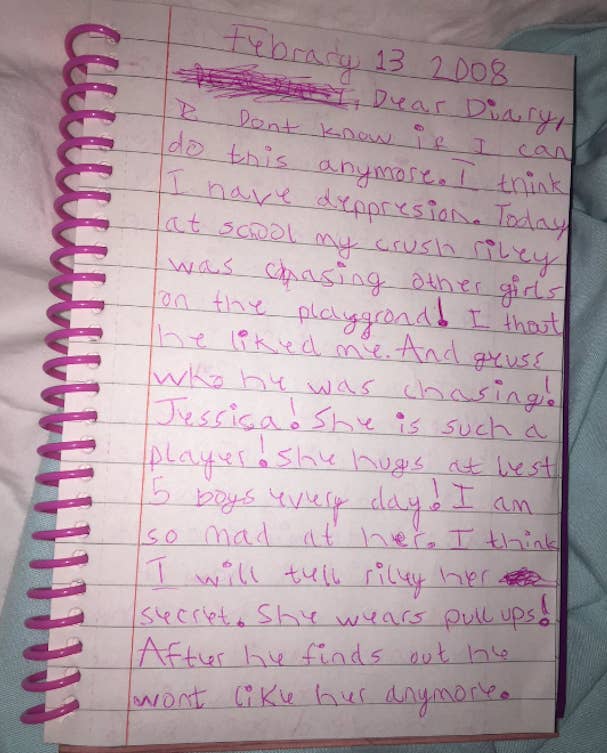 Febrary 13 2008
, Dear Diary,
I Dont know if I can
do this anymore. I think
I have deppresion. Today
at scool my crush riley
was chasing other girls
on the playgrond! I thot
he liked me. And geuse
who he was chasing!
Jessica! She is such a
player! She hugs at lest
5 boys every day! I am
so mad at her. I think
I will tell riley her
secret. She wears pull ups!
After he finds out he
wont like her anymore.